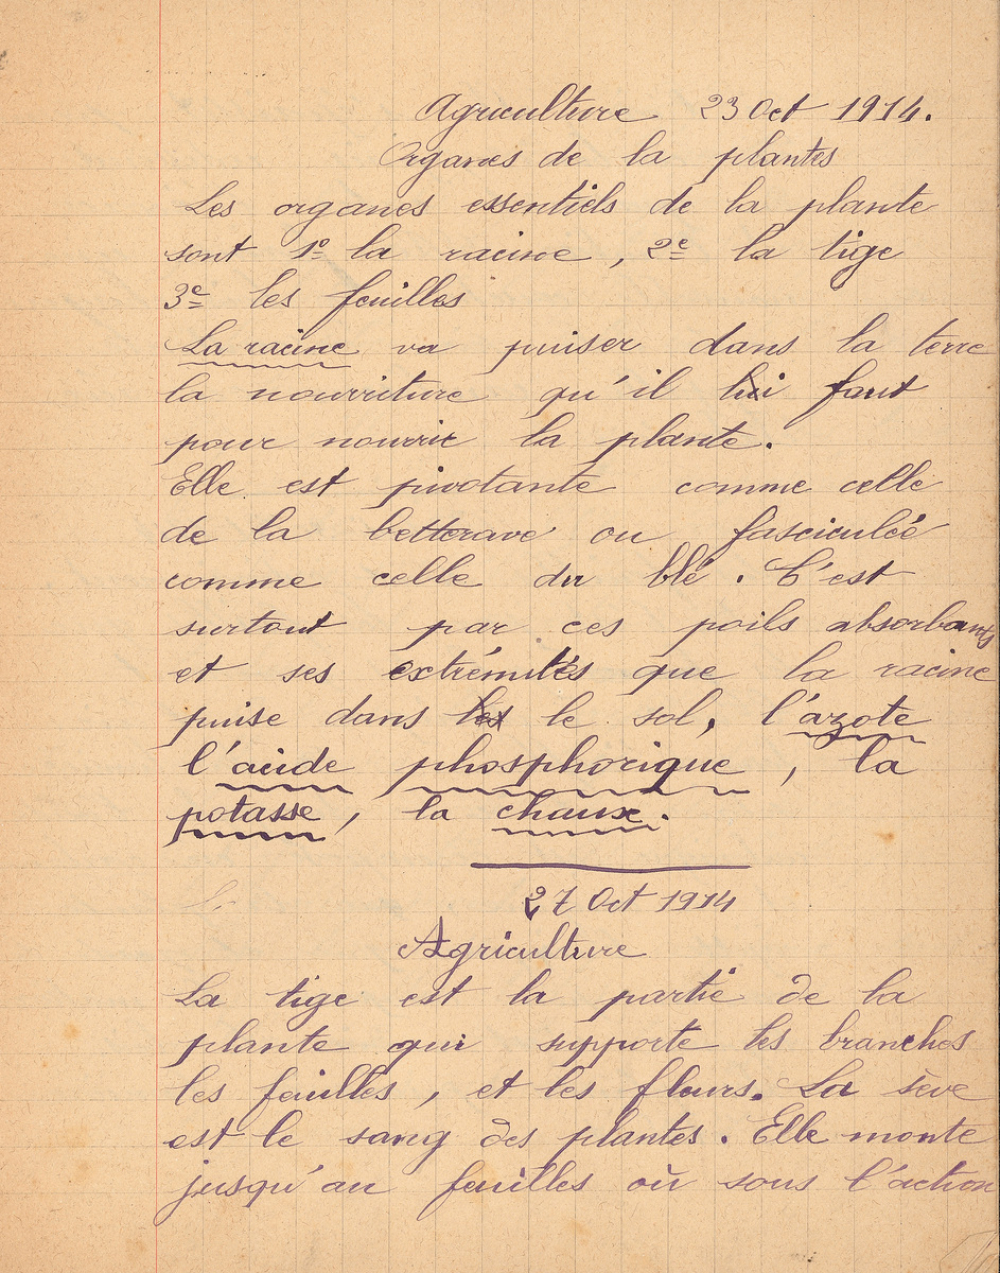 Agriculture 23 Oct 1914.
Organes de la plantes
Les organes essentiels de la plante
sont 1º la racine, 2e la tige
3e les feuilles
La racine va puiser dans la terre
la nourriture qu'il lui faut
pour nourrir la plante.
Elle est pivotante comme celle
de la betterave ou fasciculée
comme celle du blé. C'est
surtout par ces poils absorbants
et ses extrémités que la racine
puise dans les le sol, l'azote
l'acide phosphorique, la
potasse, la chaux.
27 Oct 1914
Agriculture
La tige est la partie de la
plante qui supporte les branches
les feuilles, et les fleurs. La sève
est le sang des plantes. Elle monte
jusqu'au feuilles où sous l'action